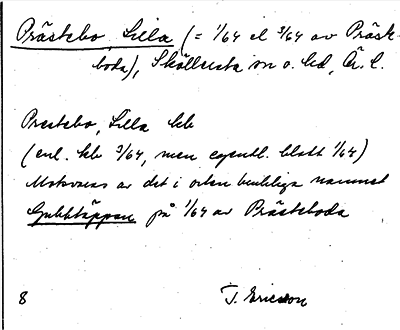 Prästebo, Lilla (= 1/64 el 3/64 av Präste-
boda), Skällvista sn o. hd, Ör. l.
Prestebo, Lilla kb
(enl. kb 3/64, men egentl. blott 1/64)
Motsvaras av det i orten brukliga namnet
Gubbtäppan på 1/64 av Prästeboda
8 T. Ericsson